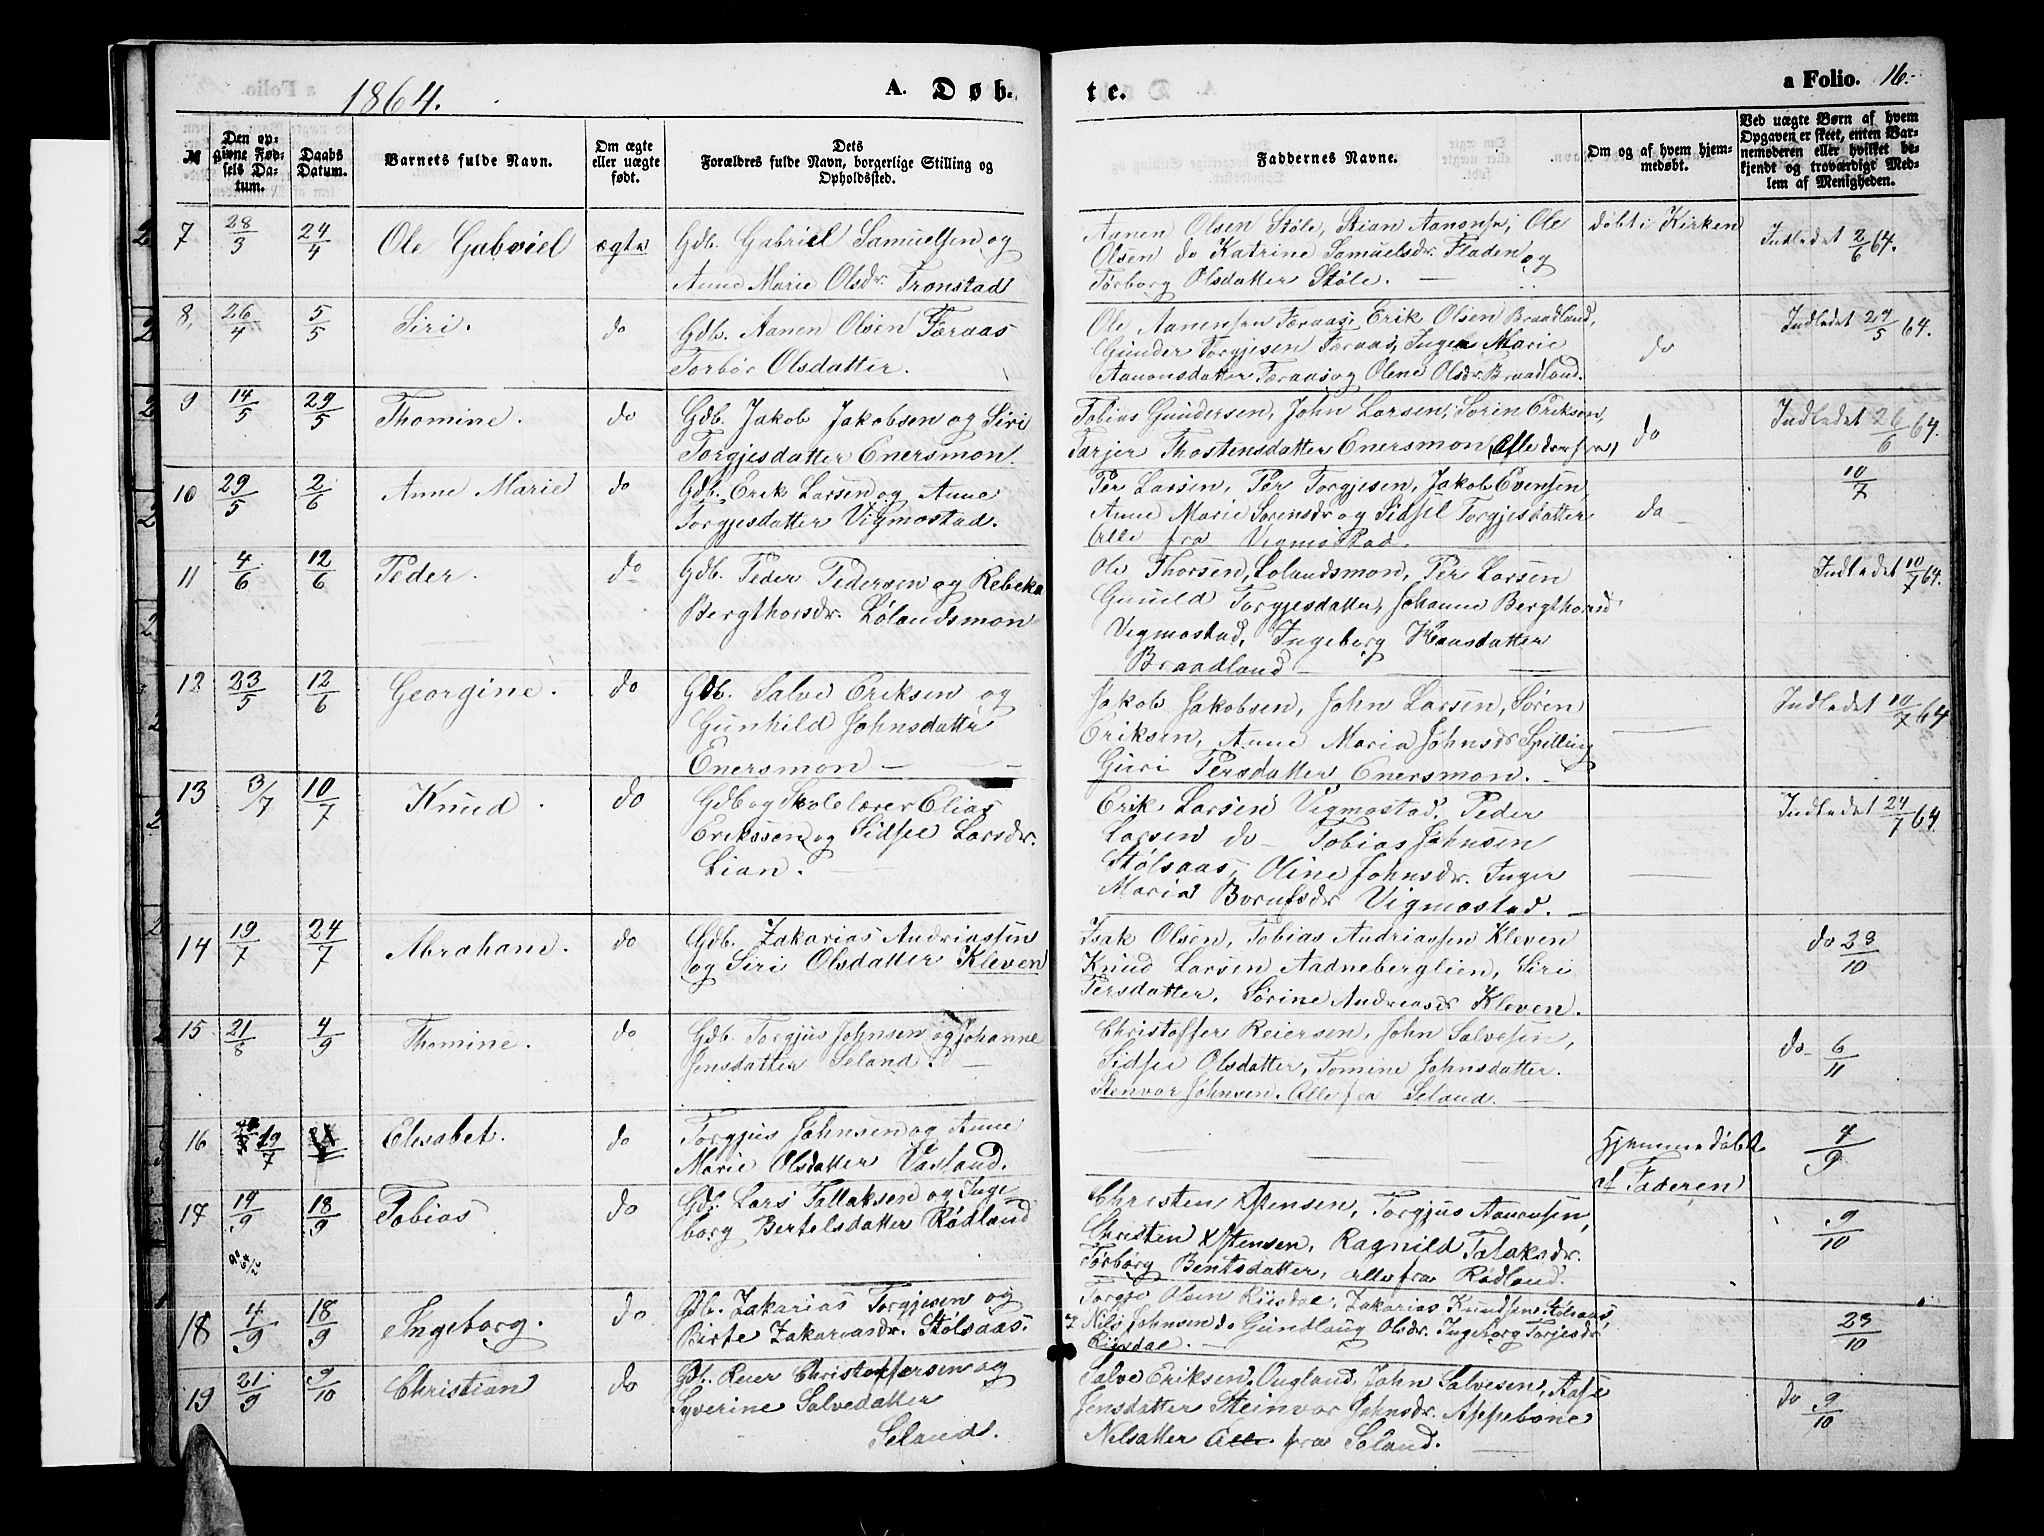 1864.
A. Døb-
te.
a Folio. 16.
№
Den op-
givne Fød-
sels Da-
tum.
Daabs
Datum.
Barnets fulde Navn.
Om ægte
eller uægte
født.
Dets
Forældres fulde Navn, borgerlige Stilling og
Opholdssted.
Faddernes Navne.
Om og af hvem hjem-
medøbt.
Ved uægte Børn af hvem
Opgaven er skeet, enten Bar-
nemoderen eller hvilket be-
kjendt og troværdigt Med-
lem af Menigheden.
7 28/3 24/4 Ole Gabriel ægte
Gdb. Gabriel Samuelsen og
Anne Marie Olsdr. Tronstad
Aanen Olsen Støle, Stian Aanonsen, Ole
Olsen do Katrine Samuelsdr. Fladen og
Tørborg Olsdatter Støle. —
døbt i Kirken
Indledet 2/6 64.
8, 26/4 5/5 Siri. do
Gdb. Aanen Olsen Færaas
Torbør Olsdatter.
Ole Aanensen Færaas, Erik Olsen Braadland,
Gunder Torgjesen Færaas, Inger Marie
Aanonsdatter Færaas og Olene Olsdr. Braadland.
do
Indledet 24/5 64.
9 14/5 29/5 Thomine. do
Gdb. Jakob Jakobsen og Siri
Torgjesdatter Enersmon.
Tobias Gundersen, John Larsen, Sørin Eriksen,
Tarjer Thostensdatter Enersmon (Alle derfra)
do
Indledet 26/6 64.
10 29/5 2/6 Anne Marie do
Gdb. Erik Larsen og Anne
Torgjesdatter Vigmostad.
Per Larsen, Per Torgjesen, Jakob Evensen,
Anne Marie Sørensdr og Sidsel Torgjesdatter
Alle fra Vigmostad.
do
10/7
11 4/6 12/6 Peder. do
Gdb. Peder Pedersen og Rebeka
Bergthorsdr. Lølandsmon
Ole Thorsen, Lolandsmon, Per Larsen
Gunild Torgjesdatter, Johanne Bergthorsd
Vigmostad, Ingeberg Hansdatter
Braadland
Indledet 10/7 64.
12 23/5 12/6 Georgine. do
Gdb. Salve Eriksen og
Gunhild Johnsdatter
Enersmon —
Jakob Jakobsen, John Larsen, Søren
Eriksen, Anne Maria Johnsdr Spilling
Guri Persdatter Enersmon. —
Indledet 10/7 64
13 3/7 10/7 Knud. do
Gdb og Skolelærer Elias
Erikssen og Sidsel Larsdr.
Lian. —
Erik Larsen Vigmostad, Peder
Larsen do — Tobias Johnsen
Stølsaas, Oline Johnsdr. Inger
Maria Bornfsdr Vigmostad. —
Indledet 24/7 64.
14 19/7 24/7 Abraham. do
Gdb. Zakarias Andriassen
og Siri Olsdatter Kleven
Isak Olsen, Tobias Andriassen Kleven
Knud Larsen Aadneberglien, Siri
Persdatter, Sørine Andreasdr Kleven.
do 23/10
15 21/8 4/9 Thomine. do
Gdb. Torgjus Johnsen og Johanne
Jensdatter Seland. —
Christoffer Reiersen, John Salvesen,
Sidsel Olsdatter, Tomine Johnsdatter.
Stenvor Johnsen. Alle fra Seland. —
do 6/11
16 19/7 Elesabet. do
Torgjus Johnsen og Anne
Marie Olsdatter Vasland.
Hjemmedøbt
af Faderen
4/9
17 19/9 18/9 Tobias do
Gdb. Lars Tallaksen og Inge
borg Bertelsdatter Rødland
Christen Østensen, Torgjus Aanensen,
Christen Østensen, Ragnild Talaksdr.
Tørborg Bentsdatter, alle fra Rødland.
9/10
18 4/9 18/9 Ingeborg. do
Gdb. Zakarias Torgjesen og
Birte Zakariasdr. Stølsaas.
Torgjo Olsen Riisdal, Zakarias Knudsen Stølsaas,
Nils Johnsen do Gundlaug Olsdr. Ingeborg Torjesdr
Riisdal. —
23/10
19 21/9 9/10 Christian do
Gdb. Reier Christoffersen og
Syverine Salvedatter
Seland.
Salve Eriksen Ougland, John Salvesen, Aase
Jensdatter Steinvor Johnsdr. Appebone
Nilsatter Alle fra Seland. —
do 9/10